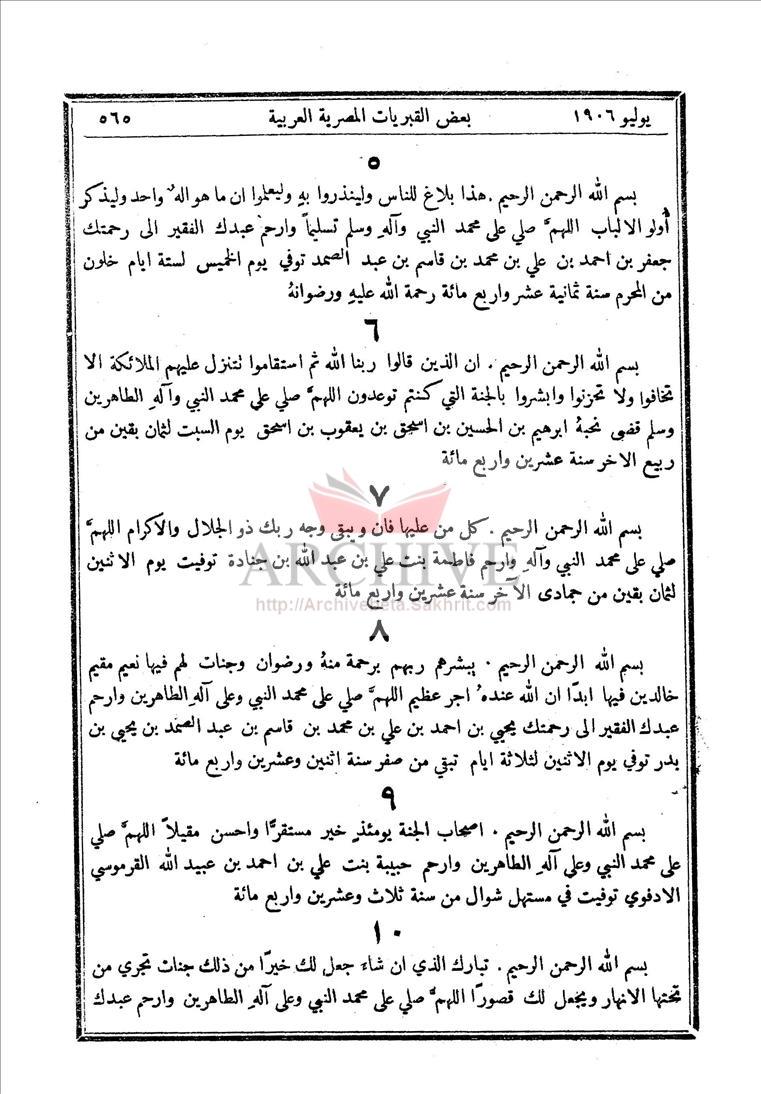 يوليو ١٩٠٦ بعض القبريات المصرية العربية ٥٦٥
٥
بسم الله الرحمن الرحيم . هذا بلاغ للناس ولينذروا بهِ وليعلموا ان ما هو الهٌ واحد وليذكر
أولو الالباب اللهمَّ صلي على محمد النبي وآلهِ وسلم تسليماً وارحم عبدك الفقير الى رحمتك
جعفر بن احمد بن علي بن محمد بن قاسم بن عبد الصمد توفي يوم الخميس لستة ايام خلون
من المحرم سنة ثمانية عشر واربع مائة رحمة الله عليهِ ورضوانهُ
٦
بسم الله الرحمن الرحيم . ان الذين قالوا ربنا الله ثم استقاموا تتنزل عليهم الملائكة الا
تخافوا ولا تحزنوا وابشروا بالجنة التي كنتم توعدون اللهمَّ صلي على محمد النبي وآلهِ الطاهرين
وسلم قضى نحبهُ ابرهيم بن الحسين بن اسحق بن يعقوب بن اسحق يوم السبت لثمان بقين من
ربيع الاخر سنة عشرين واربع مائة
٧
بسم الله الرحمن الرحيم . كل من عليها فان ويبقى وجه ربك ذو الجلال والاكرام اللهمَّ
صلي على محمد النبي وآلهِ وارحم فاطمة بنت علي بن عبد الله بن جنادة توفيت يوم الاثنين
لثمان بقين من جمادى الآخر سنة عشرين واربع مائة
ARCHIVE
http://Archivebeta.Sakhrit.com
٨
بسم الله الرحمن الرحيم . يبشرهم ربهم برحمة منهُ ورضوان وجنات لهم فيها نعيم مقيم
خالدين فيها ابدًا ان الله عندهُ اجر عظيم اللهمَّ صلي على محمد النبي وعلى آلهِ الطاهرين وارحم
عبدك الفقير الى رحمتك يحيي بن احمد بن علي بن محمد بن قاسم بن عبد الصمد بن يحيي بن
بدر توفي يوم الاثنين لثلاثة ايام تبقي من صفر سنة اثنين وعشرين واربع مائة
٩
بسم الله الرحمن الرحيم . اصحاب الجنة يومئذٍ خير مستقرًّا واحسن مقيلاً اللهمَّ صلي
على محمد النبي وعلى آلهِ الطاهرين وارحم حبيبة بنت علي بن احمد بن عبيد الله القرموسي
الادفوي توفيت في مستهل شوال من سنة ثلاث وعشرين واربع مائة
١٠
بسم الله الرحمن الرحيم . تبارك الذي ان شاء جعل لك خيرًا من ذلك جنات تجري من
تحتها الانهار ويجعل لك قصورًا اللهمَّ صلي على محمد النبي وعلى آلهِ الطاهرين وارحم عبدك